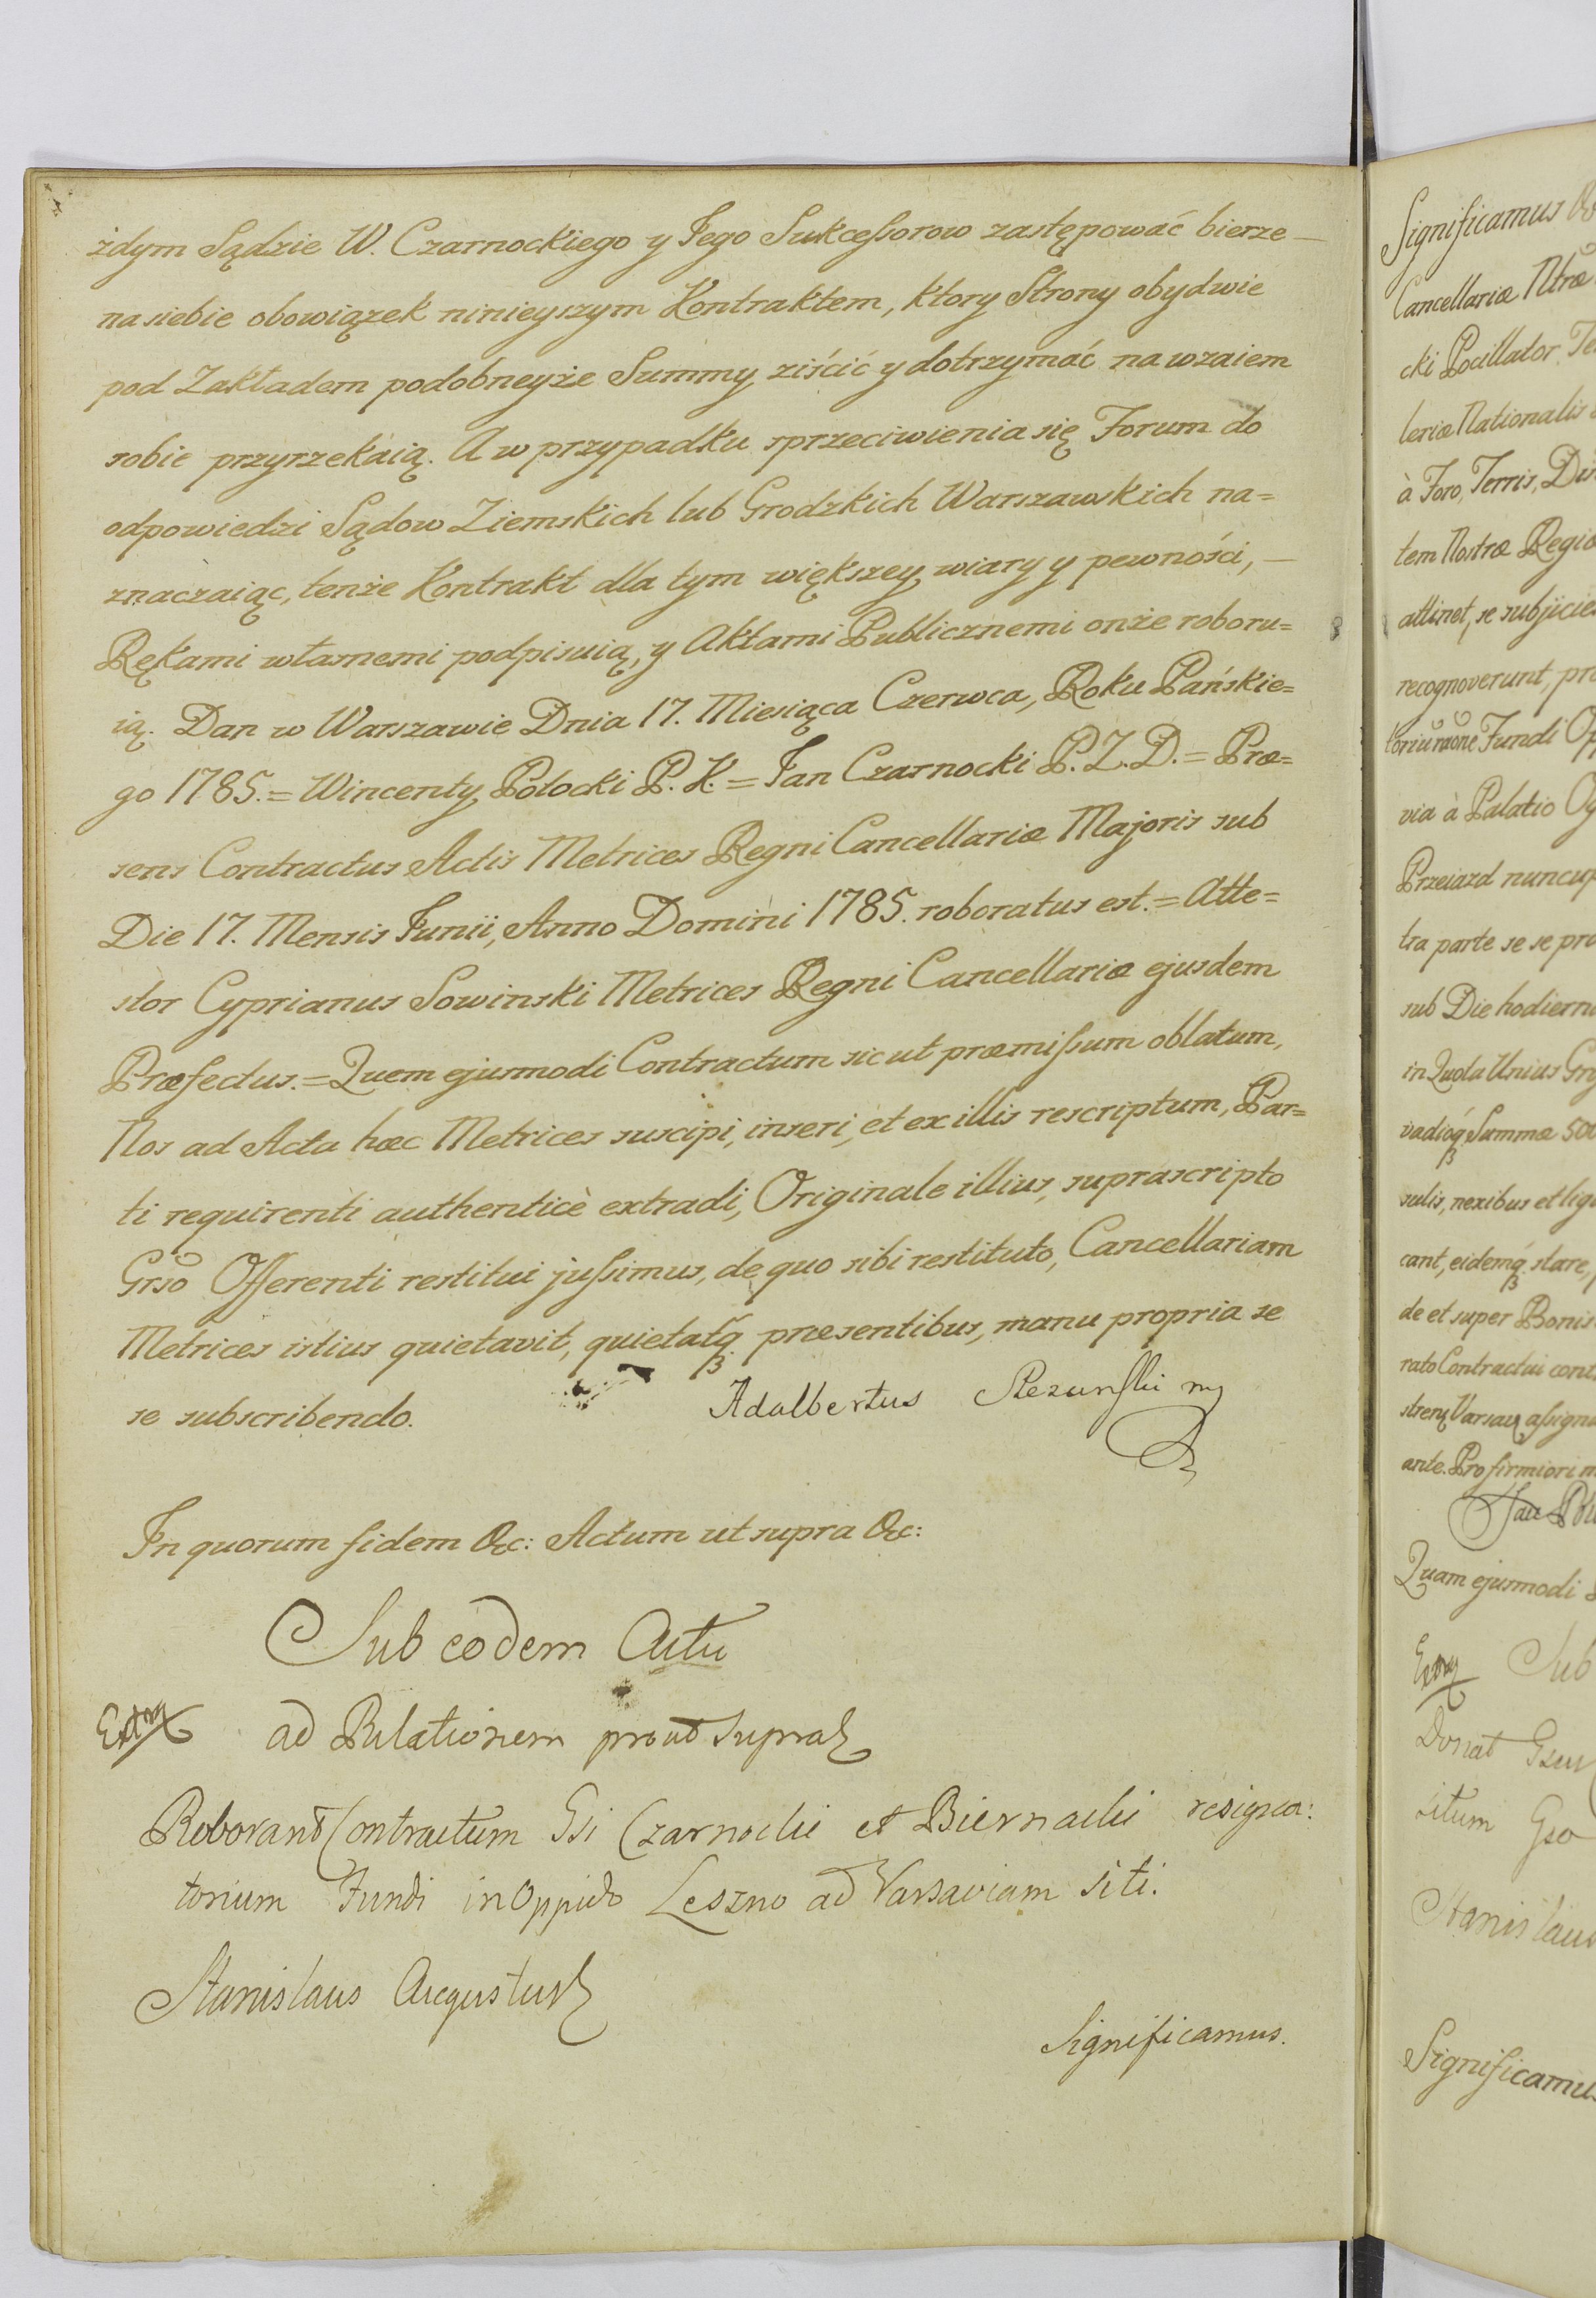 żdym Sądzie W. Czarnockiego y Jego Sukcessorow zastępować bierze —
na siebie obowiązek ninieyszym Kontraktem, ktory Strony obydwie
pod Zakładem podobneyże Summy ziścić y dotrzymać na wzaiem
sobie przyrzekaią. A w przypadku sprzeciwienia się Forum do
odpowiedzi Sądow Ziemskich lub Grodzkich Warszawskich na=
znaczaiąc, tenże Kontrakt dla tym większey wiary y pewności, —
Rękami własnemi podpisuią, y Aktami Publicznemi onże roboru=
ią. Dan w Warszawie Dnia 17. Miesiąca Czerwca, Roku Pańskie=
go 1785. = Wincenty Potocki P. K. = Jan Czarnocki P. Z. D. = Præ=
sens Contractus Actis Metrices Regni Cancellariæ Majoris sub
Die 17. Mensis Junii, Anno Domini 1785. roboratus est. = Atte=
stor Cyprianus Sowinski Metrices Regni Cancellariæ ejusdem
Præfectus. = Quem ejusmodi Contractum sic ut præmissum oblatum,
Nos ad Acta hæc Metrices suscipi, inseri, et ex illis rescriptum, Par=
ti requirenti authenticè extradi, Originale illius, suprascripto
Grso Offerenti restitui jussimus, de quo sibi restituto, Cancellariam
Metrices istius quietavit, quietatq præsentibus, manu propria se
se subscribendo.
Adalbertus
In quorum fidem &c: Actum ut supra &c:
Sub eodem Actu
ad Relationem prout supra
Roborant Contractum Gsi Czarnocki et Biernacki resigna:
torium Fundi in Oppido Leszno ad Varsaviam siti.
Stanislaus Augustus
Significamus.
Significamus
Cancellariæ Ntræ
cki Pocillator
leriæ Nationalis
à Foro, Terris,
tem Nostræ Regiæ
attinet, se
recognoverunt,
Fundi
via à Palatio
Przeiazd
tra parte se se
sub Die
in Quota Unius
Summæ
sulis, nexibus et
cant, eidemq stare,
de et super Bonis
rato Contractui
Varsav
ante. Pro firmiori
Quam ejusmodi
Sub
Donat
situm Gso
Significamus